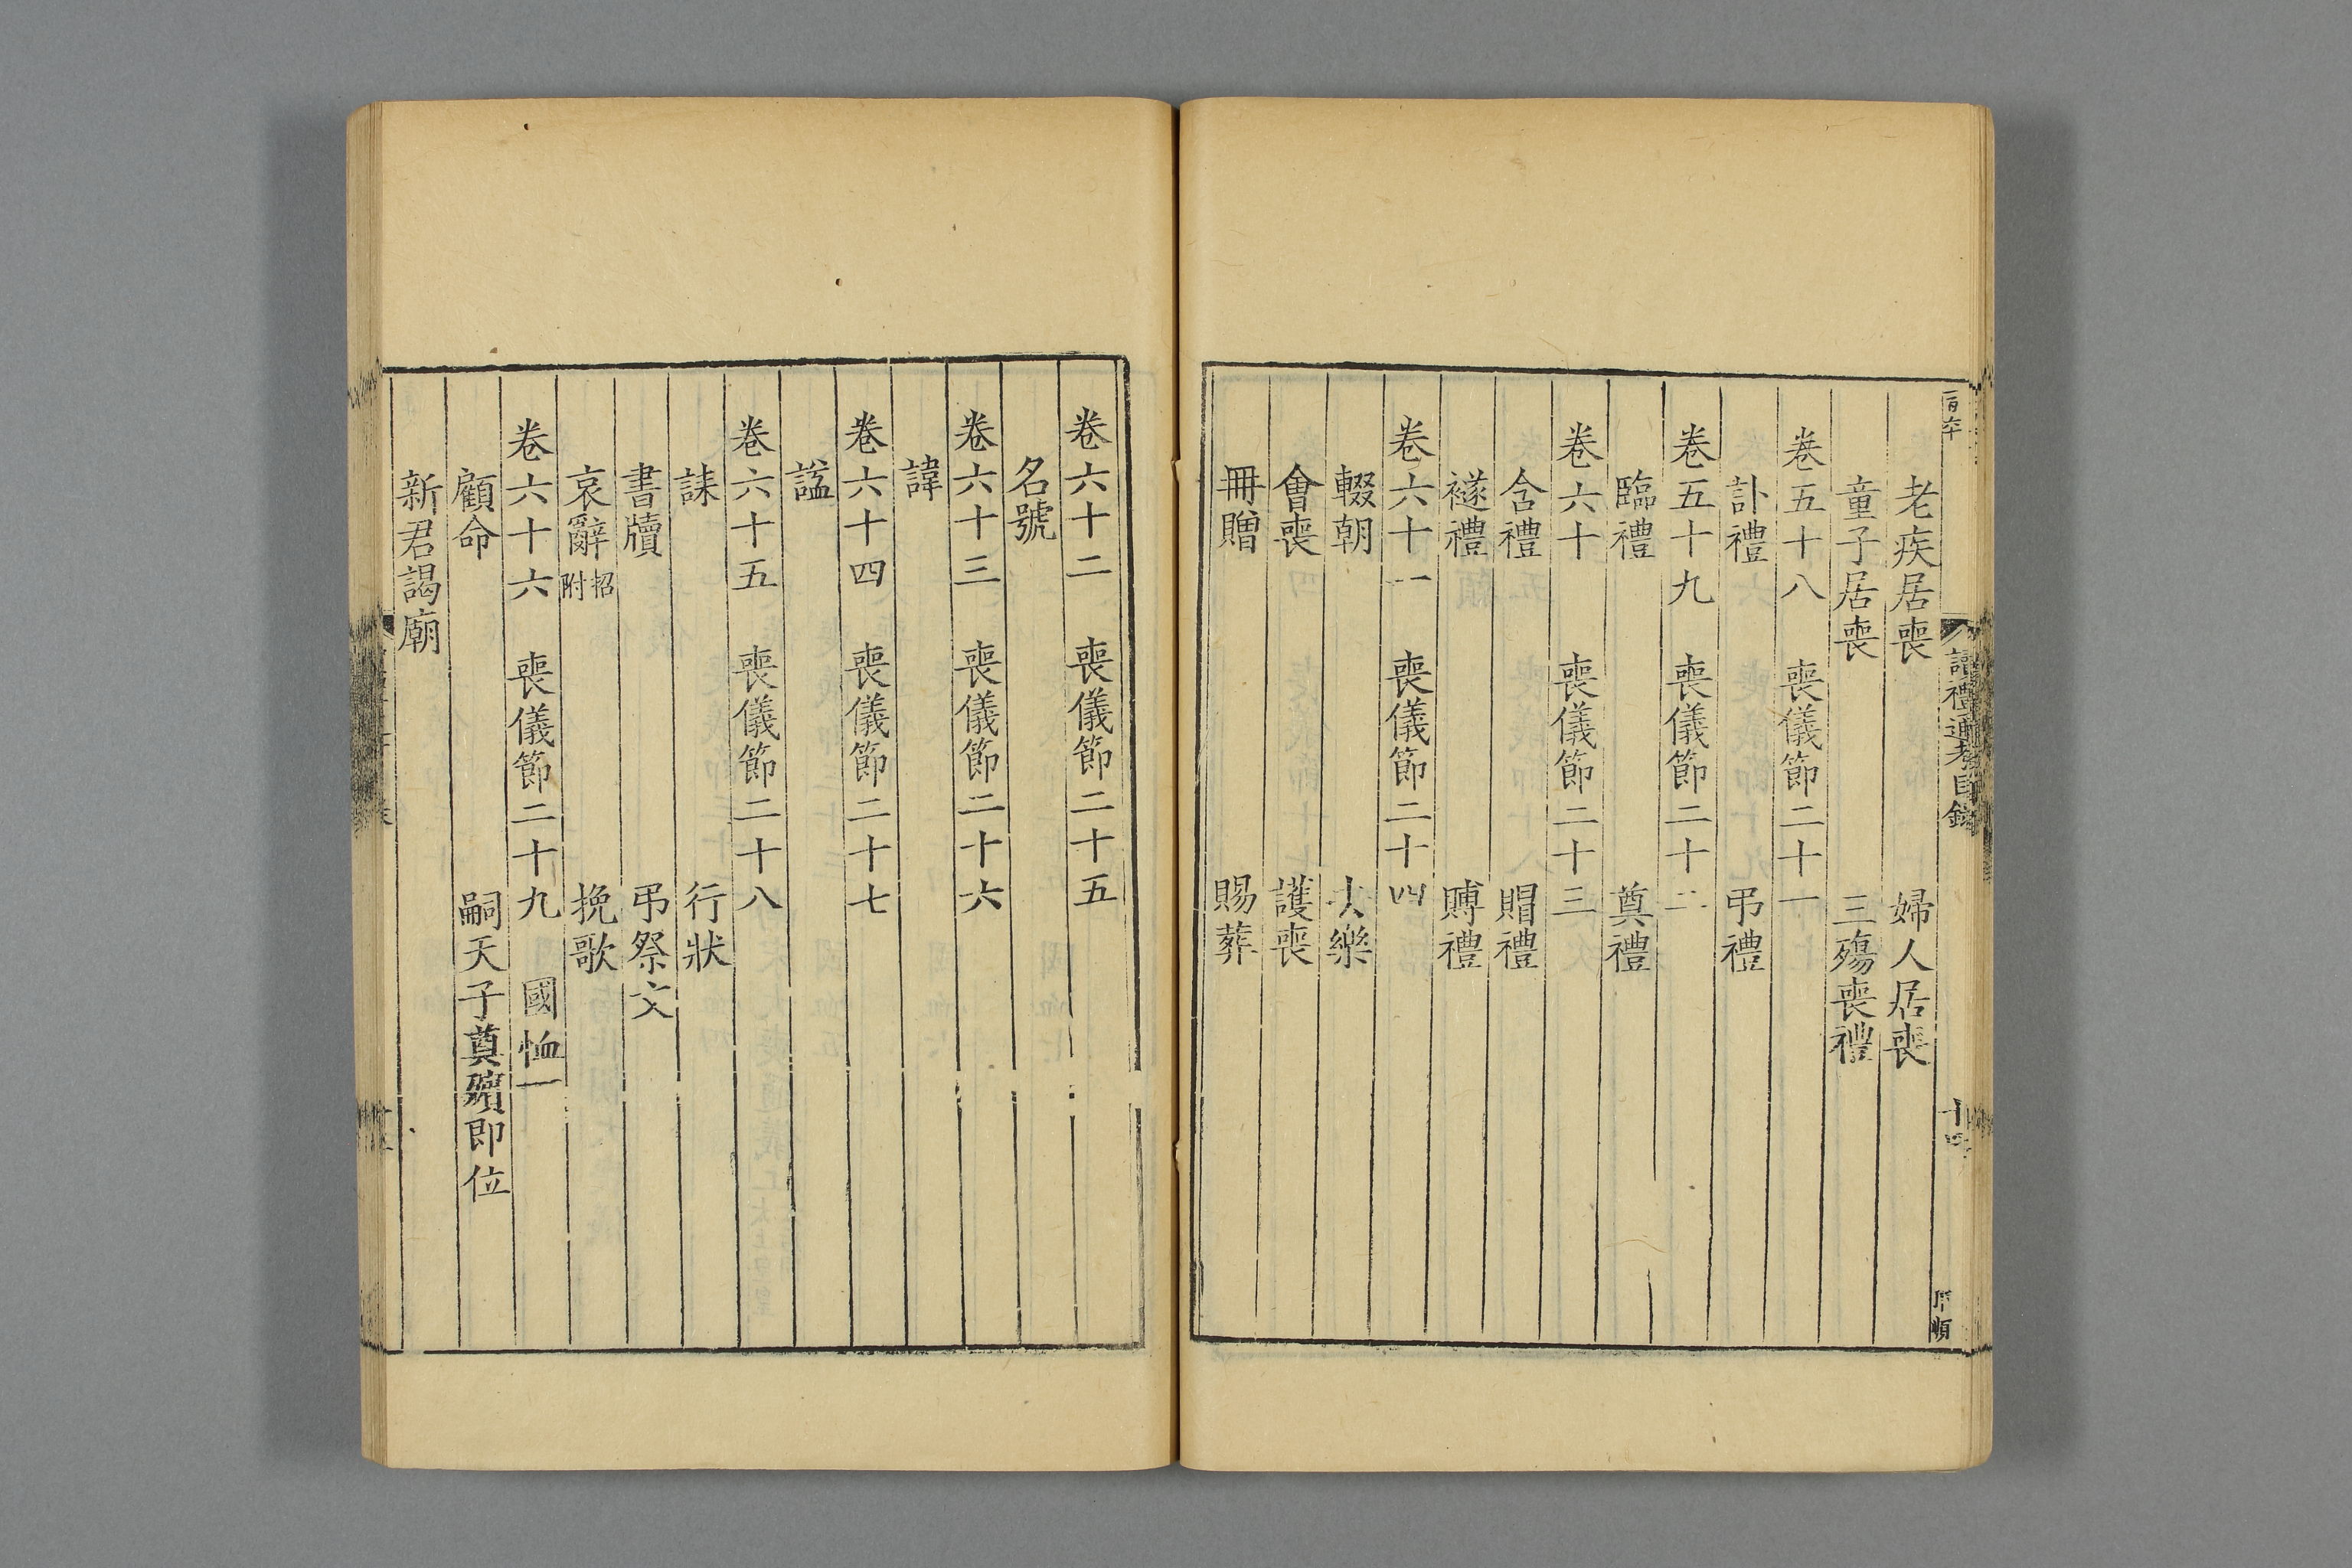 讀禮通考目錄
十四
老疾居喪 婦人居喪
童子居喪 三殤喪禮
卷五十八 喪儀節二十一
訃禮 弔禮
卷五十九 喪儀節二十二
臨禮 奠禮
卷六十 喪儀節二十三
含禮 賵禮
襚禮 賻禮
卷六十一 喪儀節二十四
輟朝 去樂
會喪 護喪
冊贈 賜葬
卷六十二 喪儀節二十五
名號
卷六十三 喪儀節二十六
諱
卷六十四 喪儀節二十七
諡
卷六十五 喪儀節二十八
誄 行狀
書牘 弔祭文
哀辭 招附 挽歌
卷六十六 喪儀節二十九 國恤一
顧命 嗣天子奠殯即位
新君謁廟